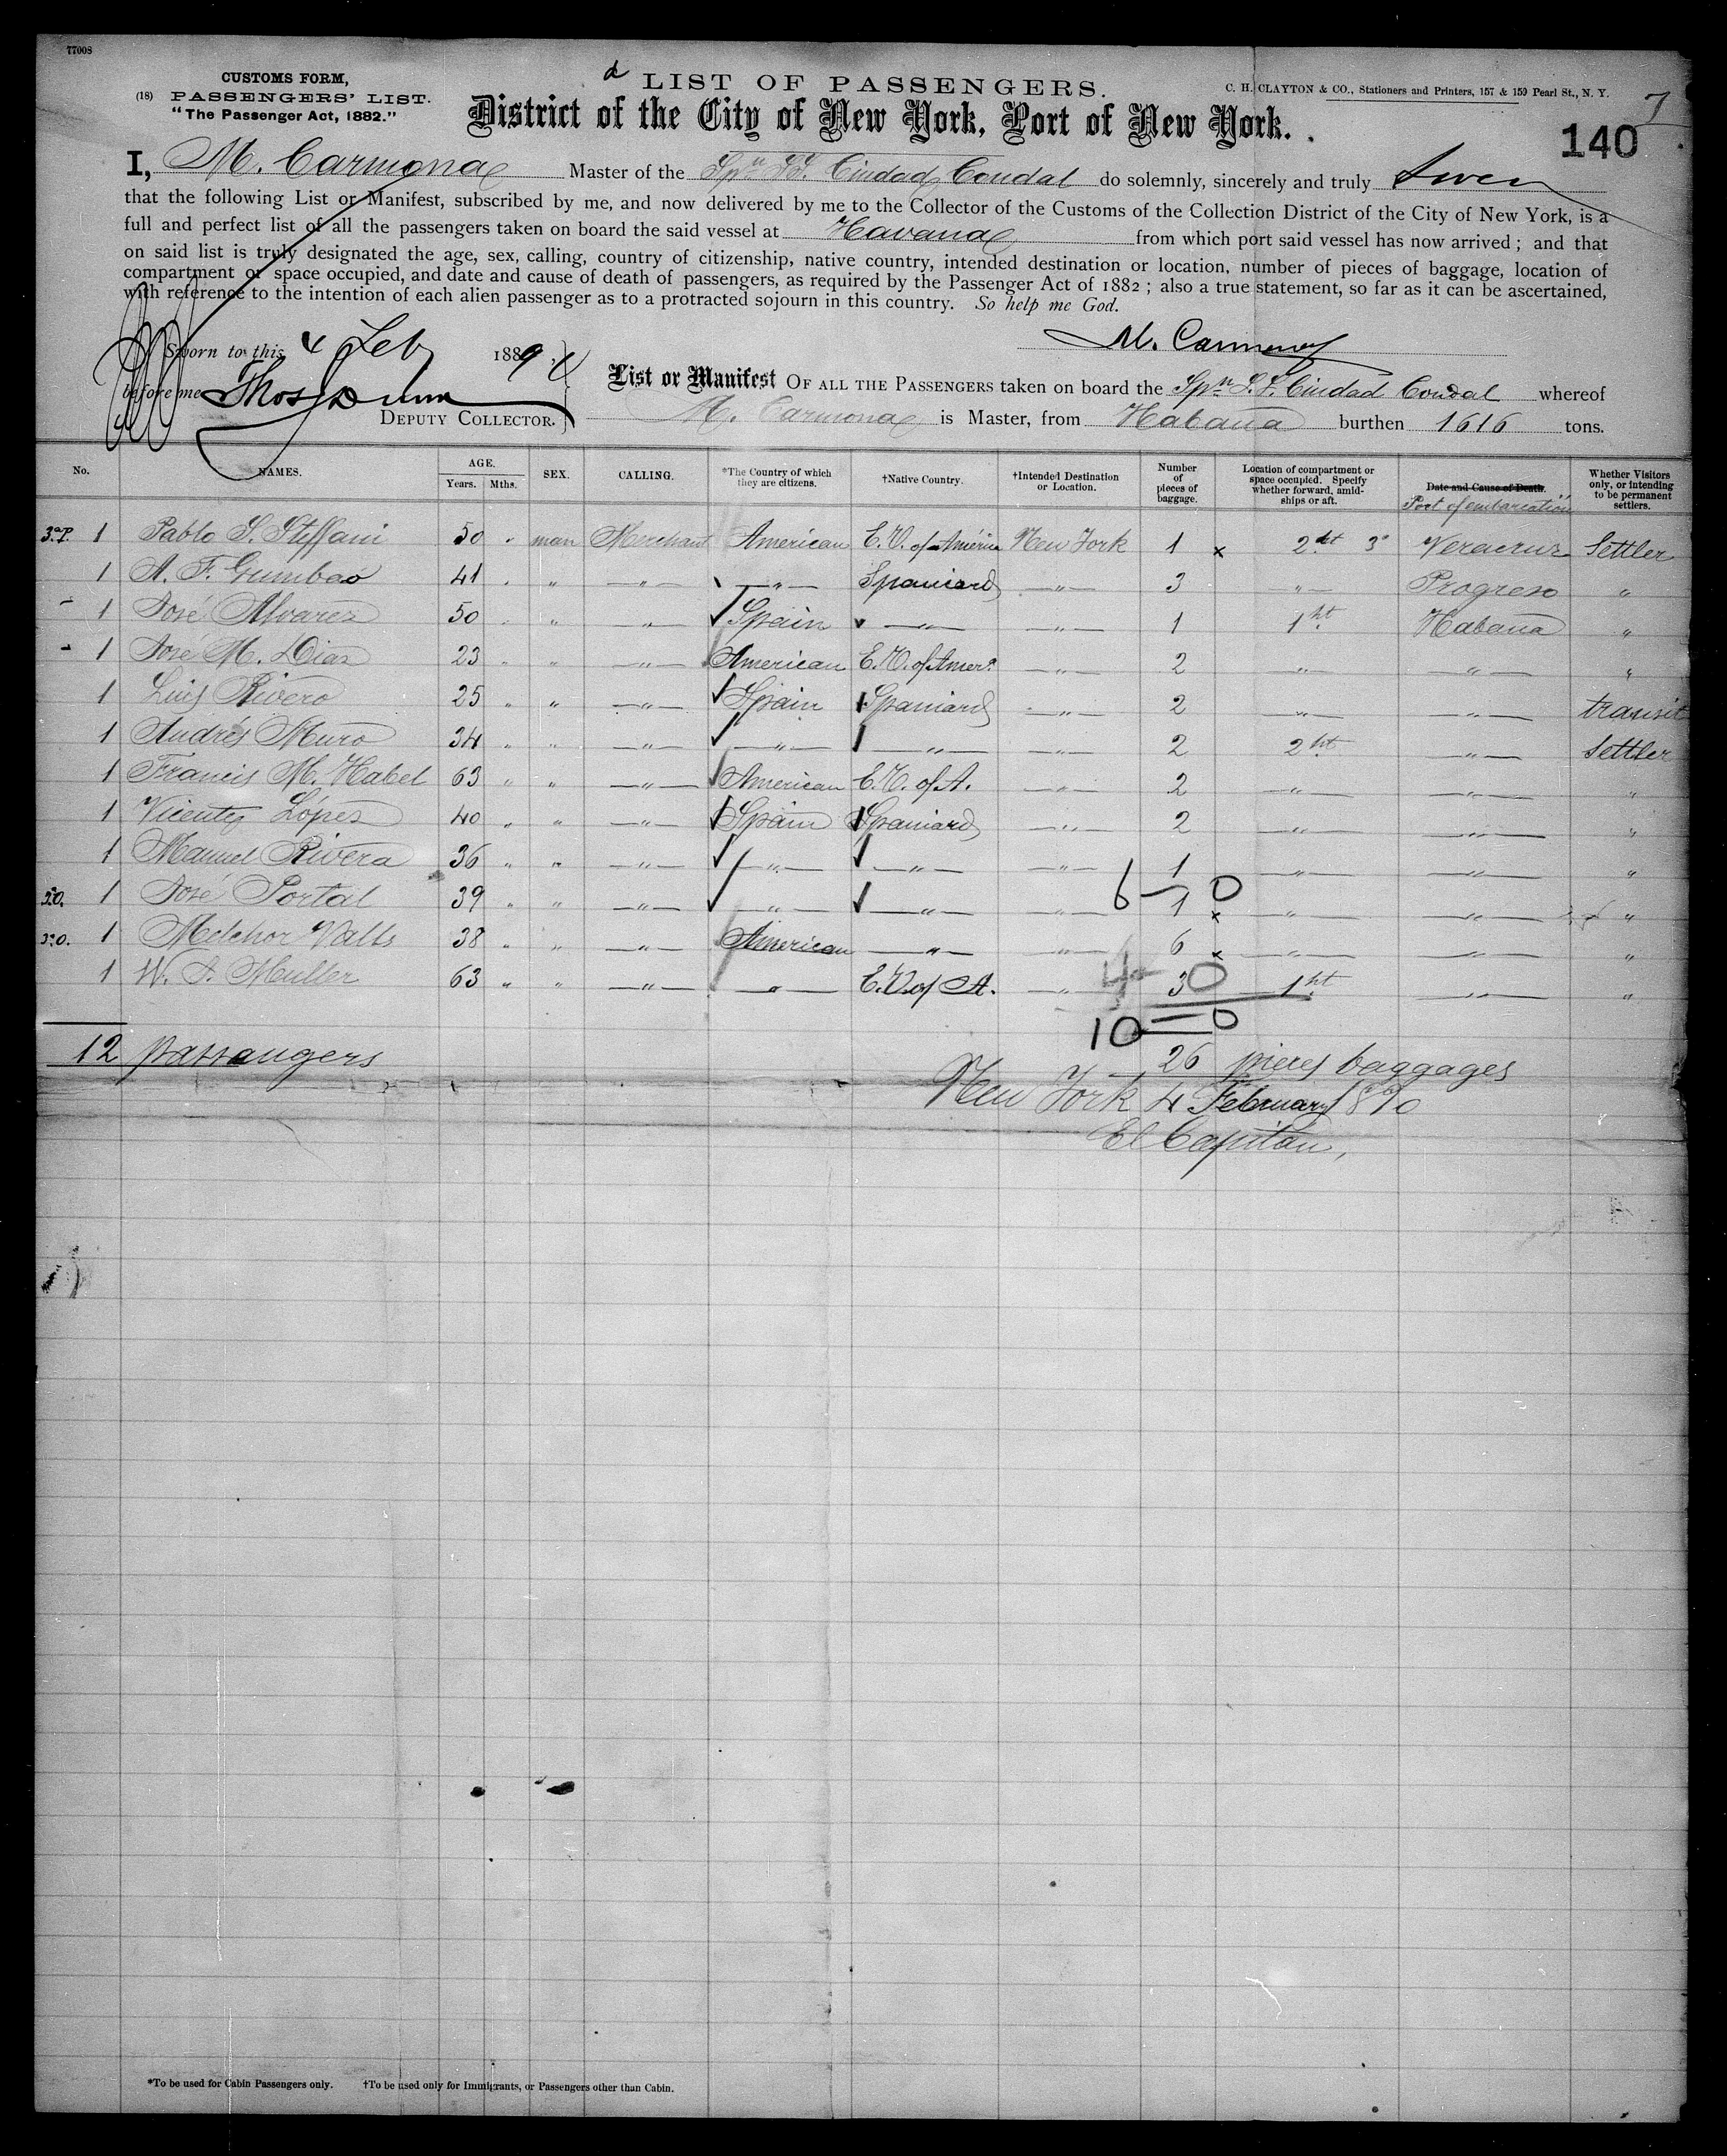 77008
CUSTOMS FORM,
(18) PASSENGERS' LIST.
"The Passenger Act, 1882."
LIST OF PASSENGERS.
C. H. CLAYTON & CO., Stationers and Printers, 157 & 159 Pearl St., N. Y.
District of the City of New York, Port of New York.
140
I, M. Carmona Master of the Spn SS. Ciudad Condal do solemnly, sincerely and truly Swear
that the following List or Manifest, subscribed by me, and now delivered by me to the Collector of the Customs of the Collection District of the City of New York, is a
full and perfect list of all the passengers taken on board the said vessel at Havana from which port said vessel has now arrived; and that
on said list is truly designated the age, sex, calling, country of citizenship, native country, intended destination or location, number of pieces of baggage, location of
compartment or space occupied, and date and cause of death of passengers, as required by the Passenger Act of 1882; also a true statement, so far as it can be ascertained,
with reference to the intention of each alien passenger as to a protracted sojourn in this country. So help me God.
M. Carmona
Sworn to this 4 Feb 1889
before me Thos Dunn
DEPUTY COLLECTOR.
List or Manifest OF ALL THE PASSENGERS taken on board the Spn S.S. Ciudad Condal whereof
M. Carmona is Master, from Habana burthen 1616 tons.
No. NAMES. AGE. Years. Mths. SEX. CALLING. *The Country of which they are citizens. †Native Country. †Intended Destination or Location. Number of pieces of baggage. Location of compartment or space occupied. Specify whether forward, amidships or aft. Date and Cause of Death. Port of embarcation Whether Visitors only, or intending to be permanent settlers.
3ªP. 1 Pablo S. Steffani 50 " man Merchant American E.U. of América New York 1 x 2ht 3ª Veracruz Settler
1 A. F. Gumbao 41 " " " " Spaniard " 3 " Progreso "
1 José Alvarez 50 " " " Spain " " 1 1ht Habana "
1 José M. Dias 23 " " " American E.U. of Amerª " 2 " " "
1 Luis Rivero 25 " " " Spain Spaniard " 2 " " transit
1 Andrés Muro 34 " " " " " " 2 2ht " Settler
1 Francis M. Habel 63 " " " American E.U. of A. " 2 " " "
1 Vicente López 40 " " " Spain Spaniard " 2 " " "
1 Manuel Rivera 36 " " " " " " 1 " " "
3ªO. 1 José Portal 39 " " " " " " 1 x " " "
3ªO. 1 Melchor Valls 38 " " " American " " 6 x " " "
1 W. A. Muller 63 " " " " E.U. of A. " 3 1ht " "
6 — 0
4 — 0
10 — 0
12 passangers
26 pieces baggages
New York, 4 February 1890
El Capitán,
*To be used for Cabin Passengers only. †To be used only for Immigrants, or Passengers other than Cabin.